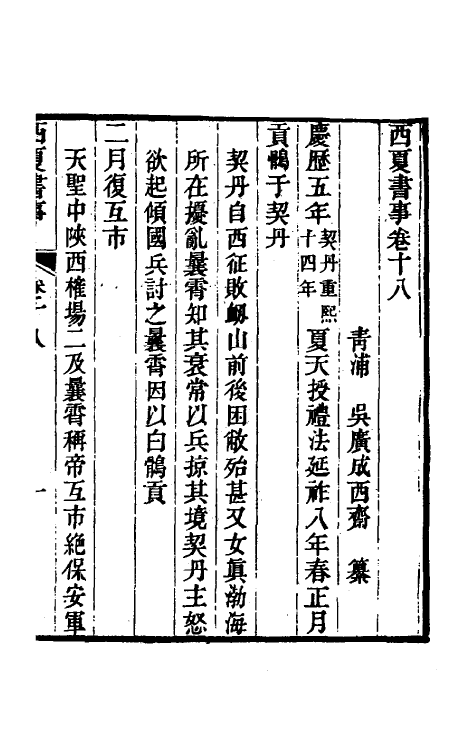 西夏書事卷十八
青浦 吳廣成西齋 纂
慶歷五年契丹重熙十四年夏天授禮法延祚八年春正月
貢鶻于契丹
契丹自西征敗衂山前後困敝殆甚又女眞渤海
所在擾亂曩霄知其衰常以兵掠其境契丹主怒
欲起傾國兵討之曩霄因以白鶻貢
二月復互市
天聖中陝西榷場二及曩霄稱帝互市絶保安軍
西夏書事 卷十八 一